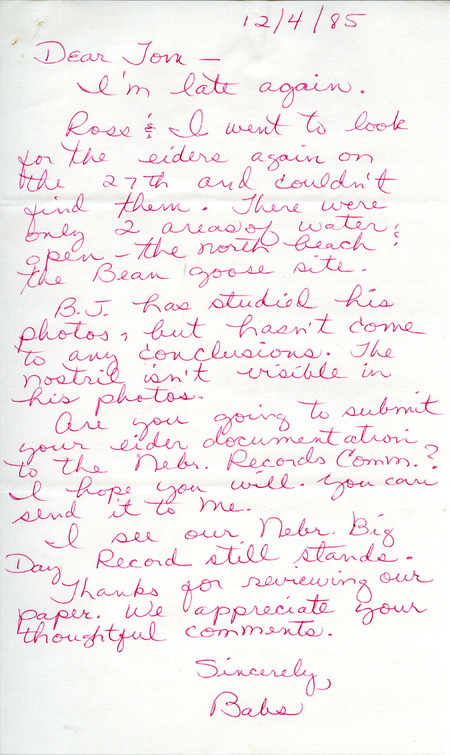 12/4/85
Dear Tom —
I'm late again.
Ross & I went to look
for the eiders again on
the 27th and couldn't
find them. There were
only 2 areas of water
open - the north beach &
the Bean goose site.
B.J. has studied his
photos, but hasn't come
to any conclusions. The
nostril isn't visible in
his photos.
Are you going to submit
your eider documentation
to the Nebr. Records Comm.?
I hope you will. You can
send it to me.
I see our Nebr. Big
Day Record still stands.
Thanks for reviewing our
paper. We appreciate your
thoughtful comments.
Sincerely,
Babs